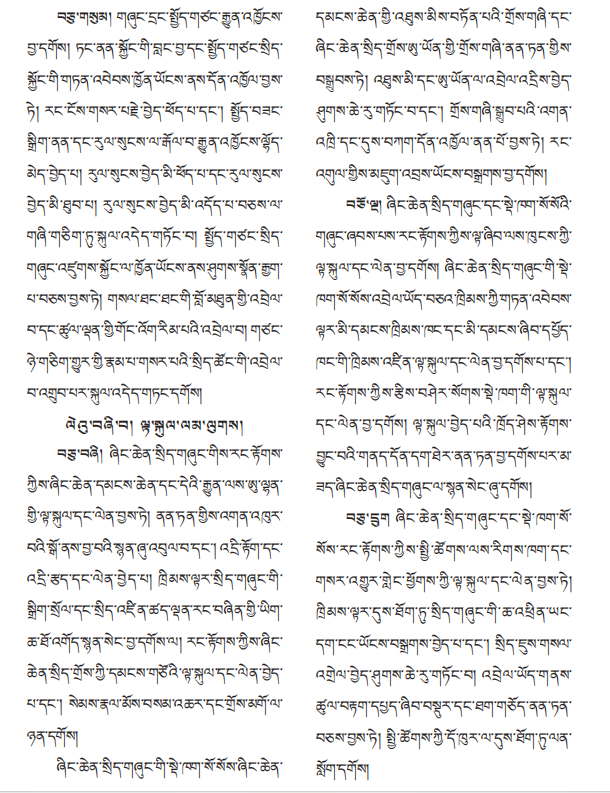 བཅུ་གསུམ། གཞུང་དྲང་སྤྱོད་གཙང་རྒྱུན་འཁྱོངས་
བྱ་དགོས། ཏང་ནན་སྐྱོང་གི་བླང་བྱ་དང་སྤྱོད་གཙང་སྲིད་
སྐྱོང་གི་གཏན་འབེབས་ཁྱོན་ཡོངས་ནས་དོན་འཁྱོལ་བྱས་
ཏེ། རང་ངོས་གསར་བརྗེ་བྱེད་ཕོད་པ་དང་། སྤྱོད་བཟང་
སྒྲིག་ནན་དང་རུལ་སུངས་ལ་རྒོལ་བ་རྒྱུན་འཁྱོངས་ལྷོད་
མེད་བྱེད་པ། རུལ་སུངས་བྱེད་མི་ཕོད་པ་དང་རུལ་སུངས་
བྱེད་མི་ཐུབ་པ། རུལ་སུངས་བྱེད་མི་འདོད་པ་བཅས་ལ་
གཞི་གཅིག་ཏུ་སྐུལ་འདེད་གཏོང་བ། སྤྱོད་གཙང་སྲིད་
གཞུང་འཛུགས་སྐྱོང་ལ་ཁྱོན་ཡོངས་ནས་ཤུགས་སྣོན་རྒྱག་
པ་བཅས་བྱས་ཏེ། གསལ་ཐང་ཐང་གི་བློ་མཐུན་གྱི་འབྲེལ་
བ་དང་ཚུལ་ལྡན་གྱི་གོང་འོག་རིམ་པའི་འབྲེལ་བ། གཙང་
ཉེ་གཅིག་གྱུར་གྱི་རྣམ་པ་གསར་པའི་སྲིད་ཚོང་གི་འབྲེལ་
བ་འགྲུབ་པར་སྐུལ་འདེད་གཏང་དགོས།
ལེའུ་བཞི་བ། ལྟ་སྐུལ་ལམ་ལུགས།
བཅུ་བཞི། ཞིང་ཆེན་སྲིད་གཞུང་གིས་རང་རྟོགས་
ཀྱིས་ཞིང་ཆེན་དམངས་ཆེན་དང་དེའི་རྒྱུན་ལས་ཨུ་ལྷན་
གྱི་ལྟ་སྐུལ་དང་ལེན་བྱས་ཏེ། ནན་ཏན་གྱིས་འགན་འཁུར་
བའི་སྒོ་ནས་བྱ་བའི་སྙན་ཞུ་འབུལ་བ་དང་། འདྲི་རྟོག་དང་
འདྲི་རྩད་དང་ལེན་བྱེད་པ། ཁྲིམས་ལྟར་སྲིད་གཞུང་གི་
སྒྲིག་སྲོལ་དང་སྲིད་འཛིན་ཚད་ལྡན་རང་བཞིན་གྱི་ཡིག་
ཆ་ཐོ་འགོད་སྙན་སེང་བྱ་དགོས་ལ། རང་རྟོགས་ཀྱིས་ཞིང་
ཆེན་སྲིད་གྲོས་ཀྱི་དམངས་གཙོའི་ལྟ་སྐུལ་དང་ལེན་བྱེད་
པ་དང་། སེམས་རྣལ་མོས་བསམ་འཆར་དང་གྲོས་མགོ་ལ་
ཉན་དགོས།
ཞིང་ཆེན་སྲིད་གཞུང་གི་སྡེ་ཁག་སོ་སོས་ཞིང་ཆེན་
དམངས་ཆེན་གྱི་འཐུས་མིས་བཏོན་པའི་གྲོས་གཞི་དང་
ཞིང་ཆེན་སྲིད་གྲོས་ཨུ་ཡོན་གྱི་གྲོས་གཞི་ནན་ཏན་གྱིས་
བསྒྲུབས་ཏེ། འཐུས་མི་དང་ཨུ་ཡོན་ལ་འབྲེལ་འདྲིས་བྱེད་
ཤུགས་ཆེ་རུ་གཏོང་བ་དང་། གྲོས་གཞི་སྒྲུབ་པའི་འགན་
འཁྲི་དང་དུས་བཀག་དོན་འཁྱོལ་ནན་པོ་བྱས་ཏེ། རང་
འགུལ་གྱིས་མཇུག་འབྲས་ཡོངས་བསྒྲགས་བྱ་དགོས།
བཅོ་ལྔ། ཞིང་ཆེན་སྲིད་གཞུང་དང་སྡེ་ཁག་སོ་སོའི་
གཞུང་ཞབས་པས་རང་རྟོགས་ཀྱིས་ལྟ་ཞིབ་ལས་ཁུངས་ཀྱི་
ལྟ་སྐུལ་དང་ལེན་བྱ་དགོས། ཞིང་ཆེན་སྲིད་གཞུང་གི་སྡེ་
ཁག་སོ་སོས་འབྲེལ་ཡོད་བཅའ་ཁྲིམས་ཀྱི་གཏན་འབེབས་
ལྟར་མི་དམངས་ཁྲིམས་ཁང་དང་མི་དམངས་ཞིབ་དཔྱོད་
ཁང་གི་ཁྲིམས་འཛིན་ལྟ་སྐུལ་དང་ལེན་བྱ་དགོས་པ་དང་།
རང་རྟོགས་ཀྱིས་རྩིས་བཤེར་སོགས་སྡེ་ཁག་གི་ལྟ་སྐུལ་
དང་ལེན་བྱ་དགོས། ལྟ་སྐུལ་བྱེད་པའི་ཁྲོད་ཤེས་རྟོགས་
བྱུང་བའི་གནད་དོན་དག་ཐེར་ནན་ཏན་བྱ་དགོས་པར་མ་
ཟད་ཞིང་ཆེན་སྲིད་གཞུང་ལ་སྙན་སེང་ཞུ་དགོས།
བཅུ་དྲུག ཞིང་ཆེན་སྲིད་གཞུང་དང་སྡེ་ཁག་སོ་
སོས་རང་རྟོགས་ཀྱིས་སྤྱི་ཚོགས་ལས་རིགས་ཁག་དང་
གསར་འགྱུར་གླེང་ཕྱོགས་ཀྱི་ལྟ་སྐུལ་དང་ལེན་བྱས་ཏེ།
ཁྲིམས་ལྟར་དུས་ཐོག་ཏུ་སྲིད་གཞུང་གི་ཆ་འཕྲིན་ཡང་
དག་ངང་ཡོངས་བསྒྲགས་བྱེད་པ་དང་། སྲིད་ཇུས་གསལ་
འགྲེལ་བྱེད་ཤུགས་ཆེ་རུ་གཏོང་བ། འབྲེལ་ཡོད་གནས་
ཚུལ་བརྟག་དཔྱད་ཞིབ་བསྡུར་དང་ཐག་གཅོད་ནན་ཏན་
བཅས་བྱས་ཏེ། སྤྱི་ཚོགས་ཀྱི་དོ་ཁུར་ལ་དུས་ཐོག་ཏུ་ལན་
སློག་དགོས།